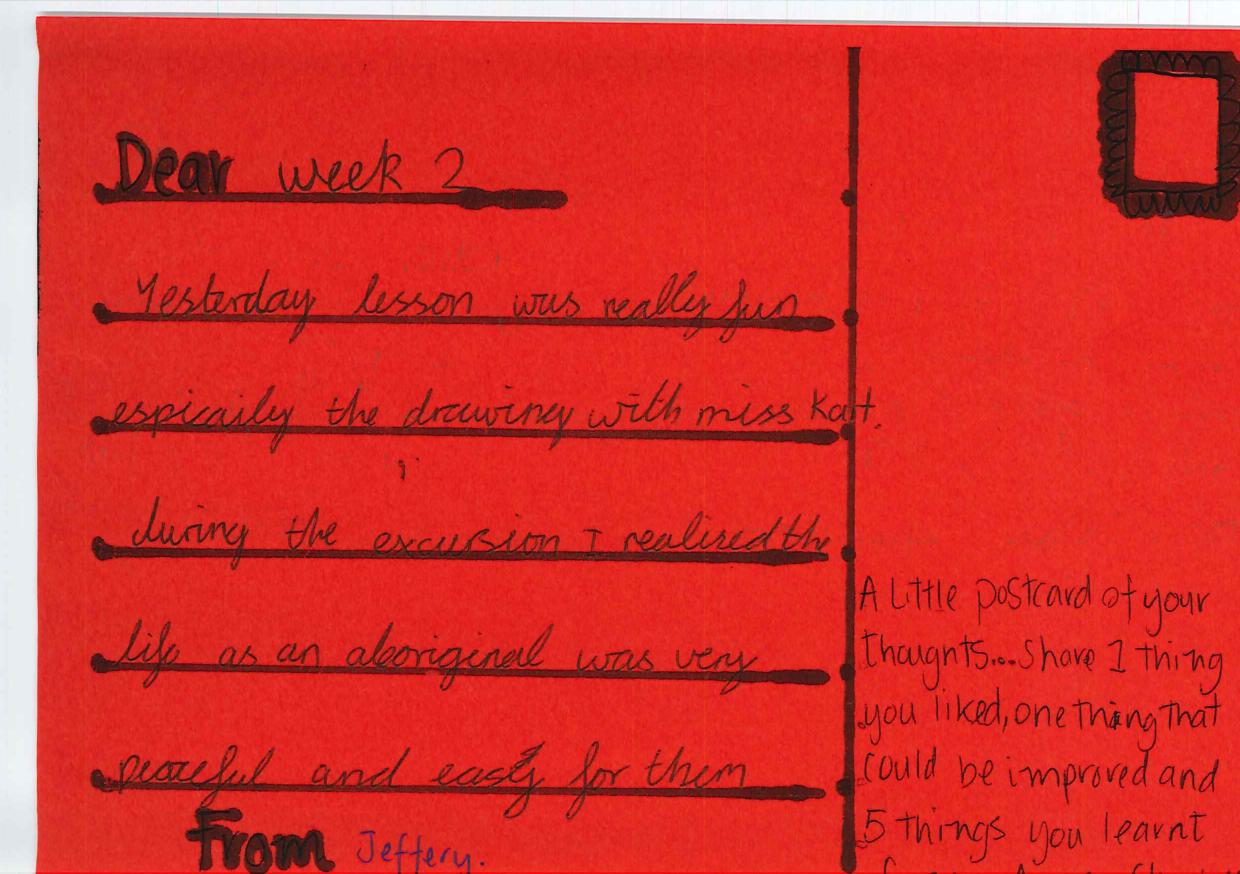 Dear week 2
Yesterday lesson was really fun
espicaily the drawing with miss Kat.
during the excursion I realized the
life as an aboriginal was very
peaceful and easy for them
From Jeffery.
A Little postcard of your
thoughts...Share 1 thing
you liked, one thing that
could be improved and
5 things you learnt